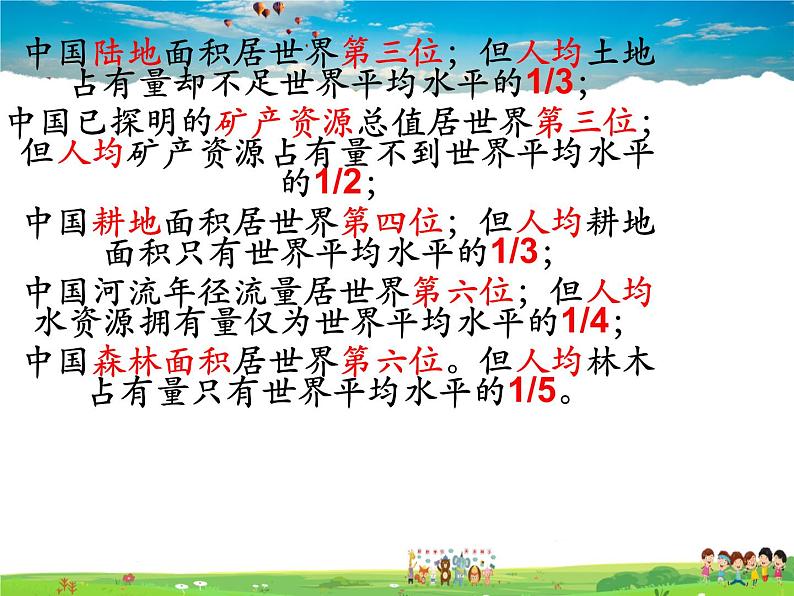 中国陆地面积居世界第三位；但人均土地
占有量却不足世界平均水平的1/3；
中国已探明的矿产资源总值居世界第三位；
但人均矿产资源占有量不到世界平均水平
的1/2；
中国耕地面积居世界第四位；但人均耕地
面积只有世界平均水平的1/3；
中国河流年径流量居世界第六位；但人均
水资源拥有量仅为世界平均水平的1/4；
中国森林面积居世界第六位。但人均林木
占有量只有世界平均水平的1/5。